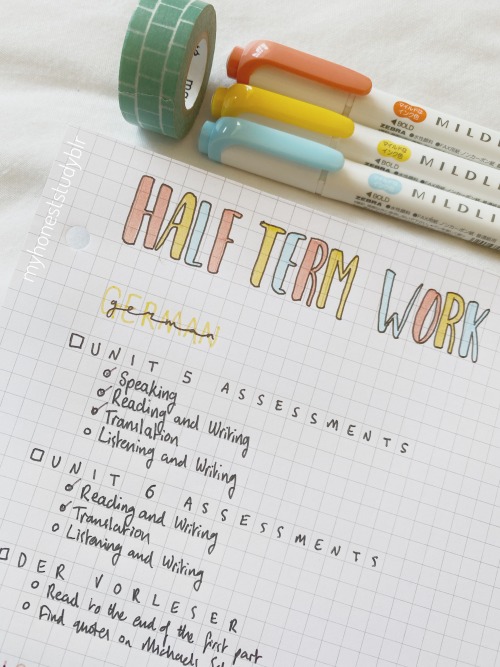 マイルドの
インク色
BOLD
ZEBRA
MILDLI
マイルドの
インク色
BOLD
ZEBRA
MILDL
BOLD
ZEBRA
MILDL
myhoneststudyblr
HALF TERM WORK
GERMAN
german
UNIT 5 ASSESSMENTS
Speaking
Reading and Writing
Translation
Listening and Writing
UNIT 6 ASSESSMENTS
Reading and Writing
Translation
Listening and Writing
DER VORLESER
Read to the end of the first part
Find quotes on Michaels